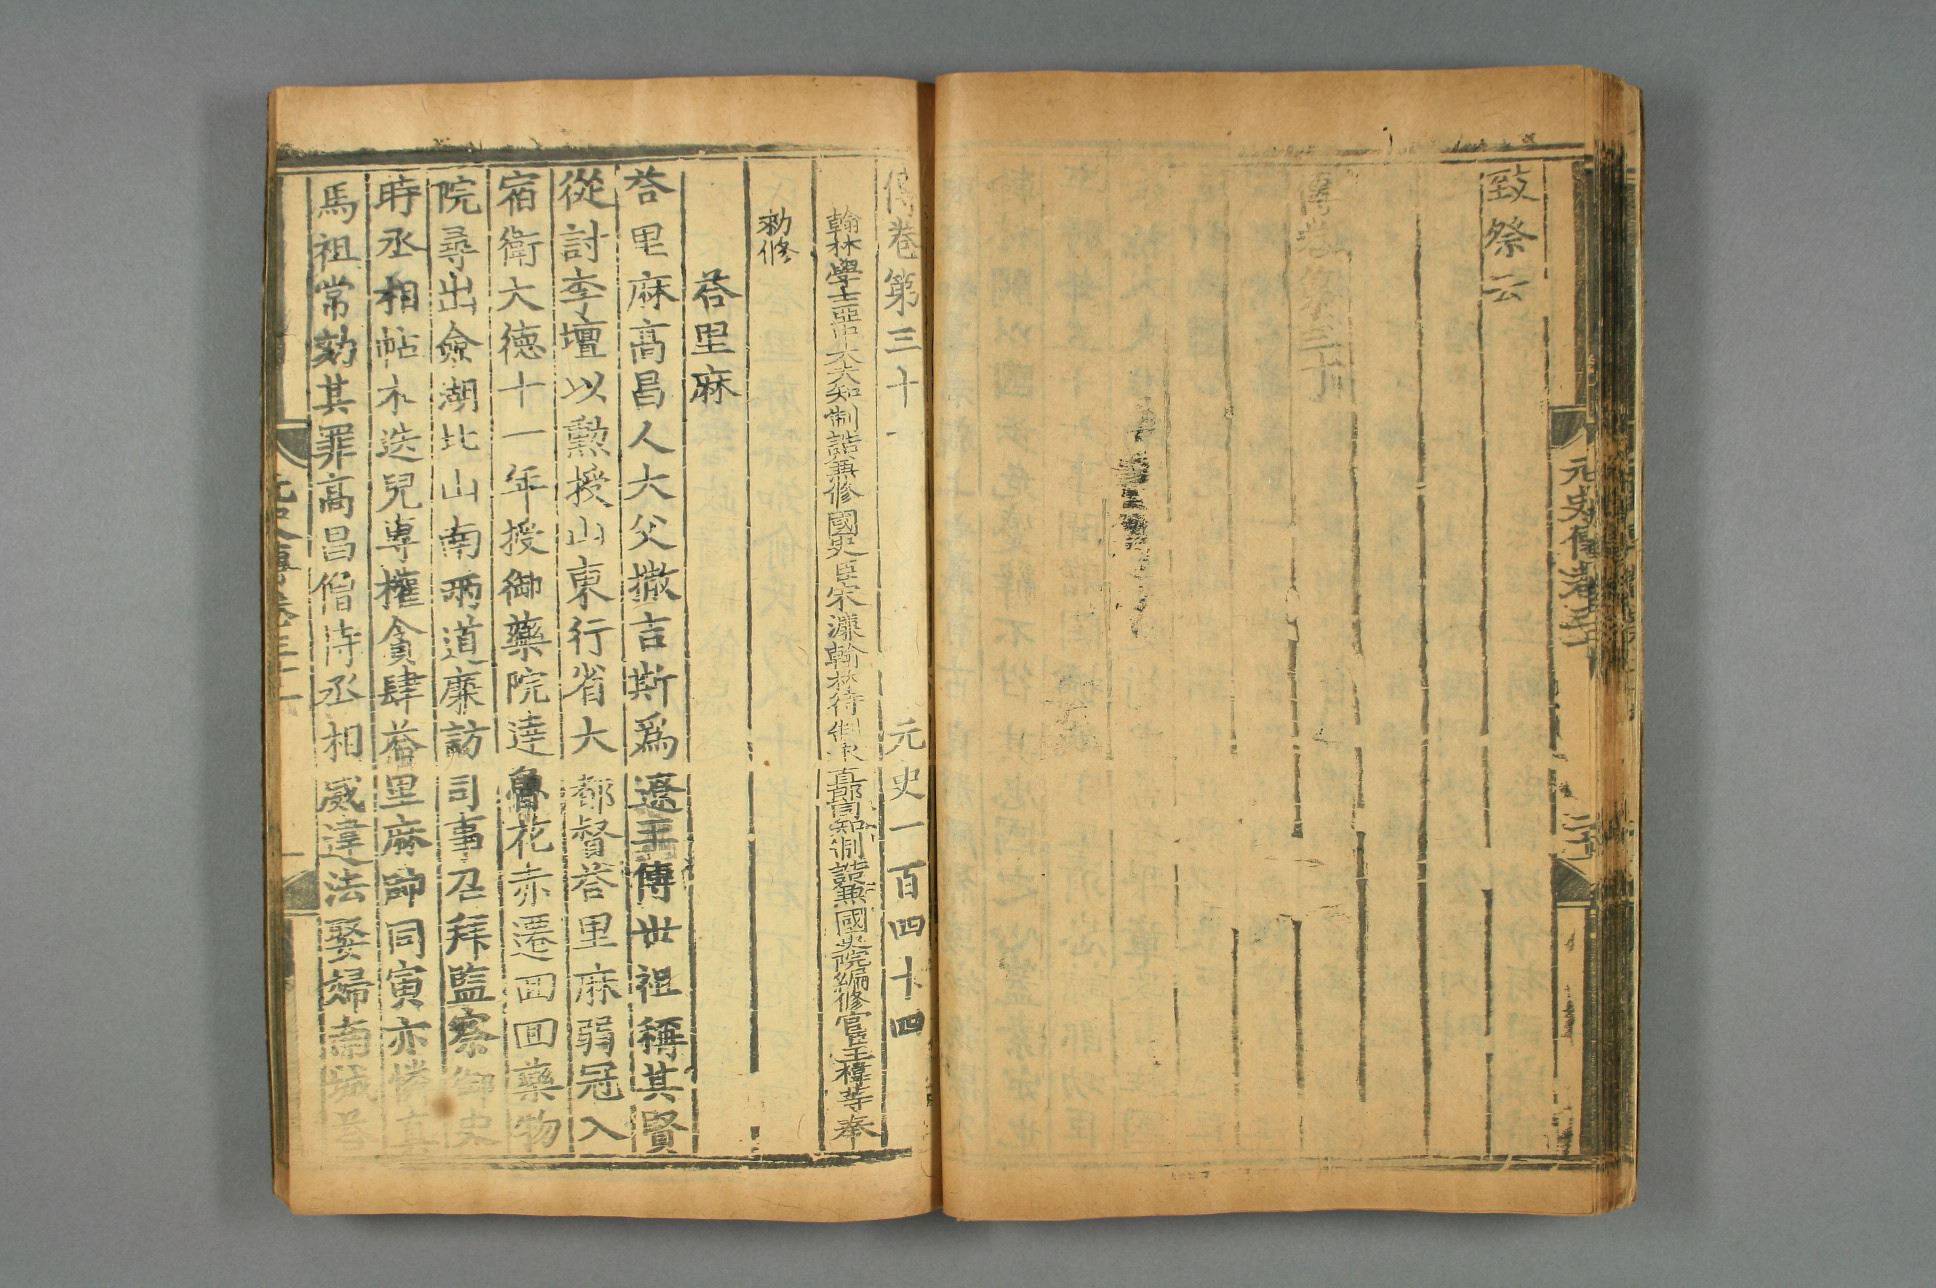 致祭云
傳卷第三十
元史傳卷三十
傳卷第三十一 元史一百四十四
翰林學士亞中大夫知制誥兼修國史臣宋濂翰林待制承直郎同知制誥兼國史院編修官臣王禕等奉
勑修
荅里麻
荅里麻高昌人大父撒吉斯爲遼王傅世祖稱其賢
從討李璮以勲授山東行省大都督荅里麻弱冠入
宿衛大德十一年授御藥院達魯花赤遷回回藥物
院尋出僉湖北山南兩道廉訪司事召拜監察御史
時丞相帖木迭兒專權貪肆荅里麻帥同寅亦憐真
馬祖常劾其罪高昌僧恃丞相威違法娶婦南城荅
元史傳卷三十一